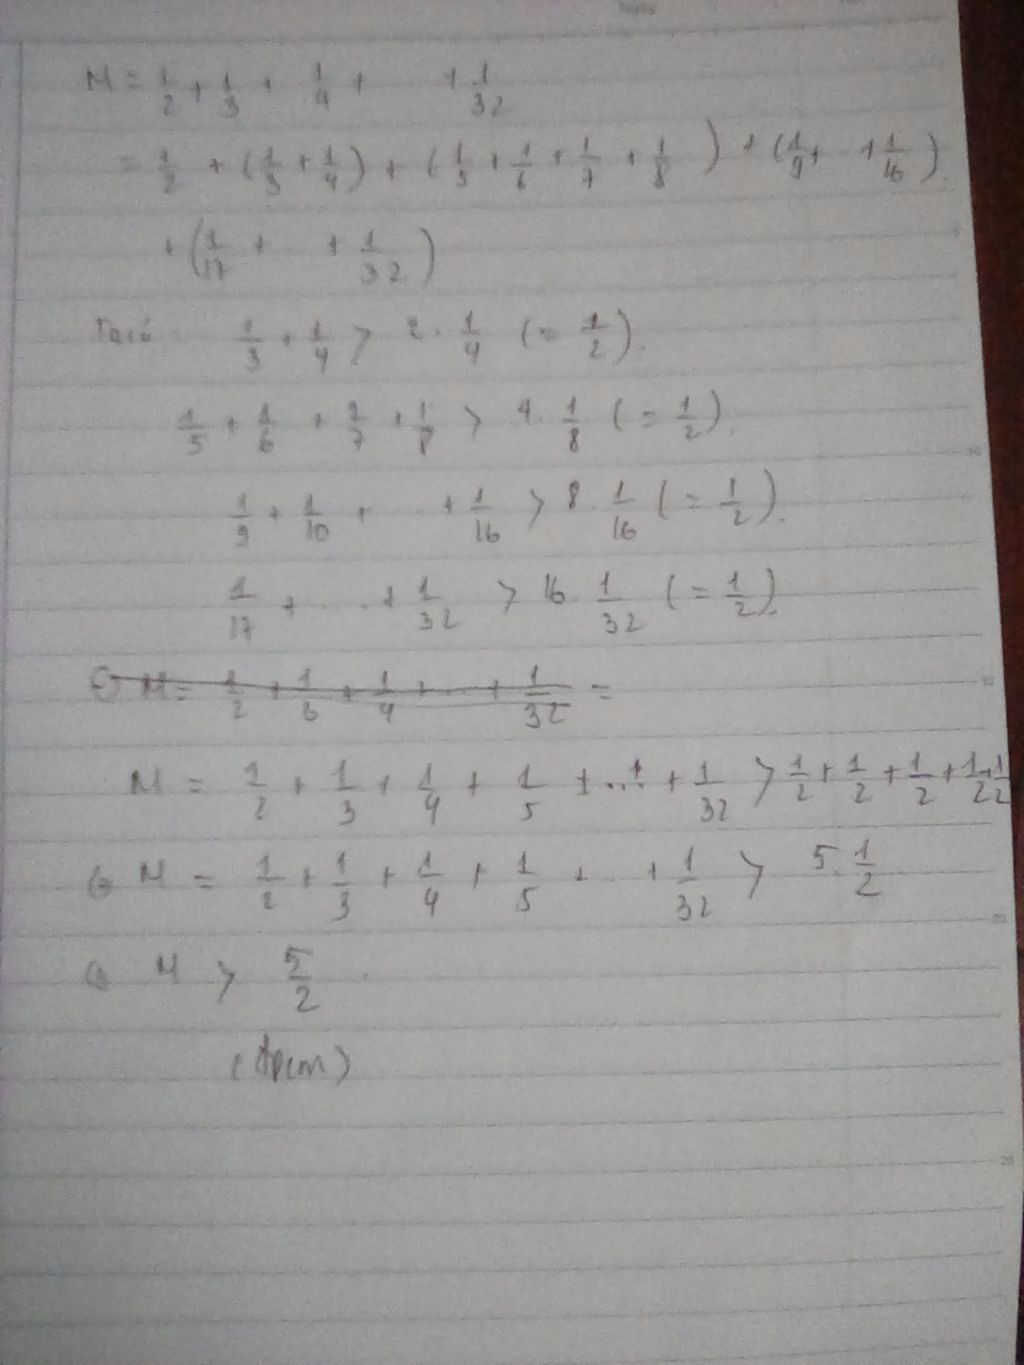 M = 1/2 + 1/3 + 1/4 + + 1/32
= 1/2 + (1/3 + 1/4) + (1/5 + 1/6 + 1/7 + 1/8) + (1/9 + .. + 1/16)
+ (1/17 + .. + 1/32)
Ta có 1/3 + 1/4 > 2. 1/4 (= 1/2).
1/5 + 1/6 + 1/7 + 1/8 > 4. 1/8 (= 1/2).
1/9 + 1/10 + .. + 1/16 > 8. 1/16 (= 1/2).
1/17 + .... + 1/32 > 16. 1/32 (= 1/2).
M = 1/2 + 1/3 + 1/4 + ... + 1/32 =
M = 1/2 + 1/3 + 1/4 + 1/5 + ... + 1/32 > 1/2 + 1/2 + 1/2 + 1/2 + 1/2
M = 1/2 + 1/3 + 1/4 + 1/5 + .. + 1/32 > 5. 1/2
M > 5/2 .
(đpcm)